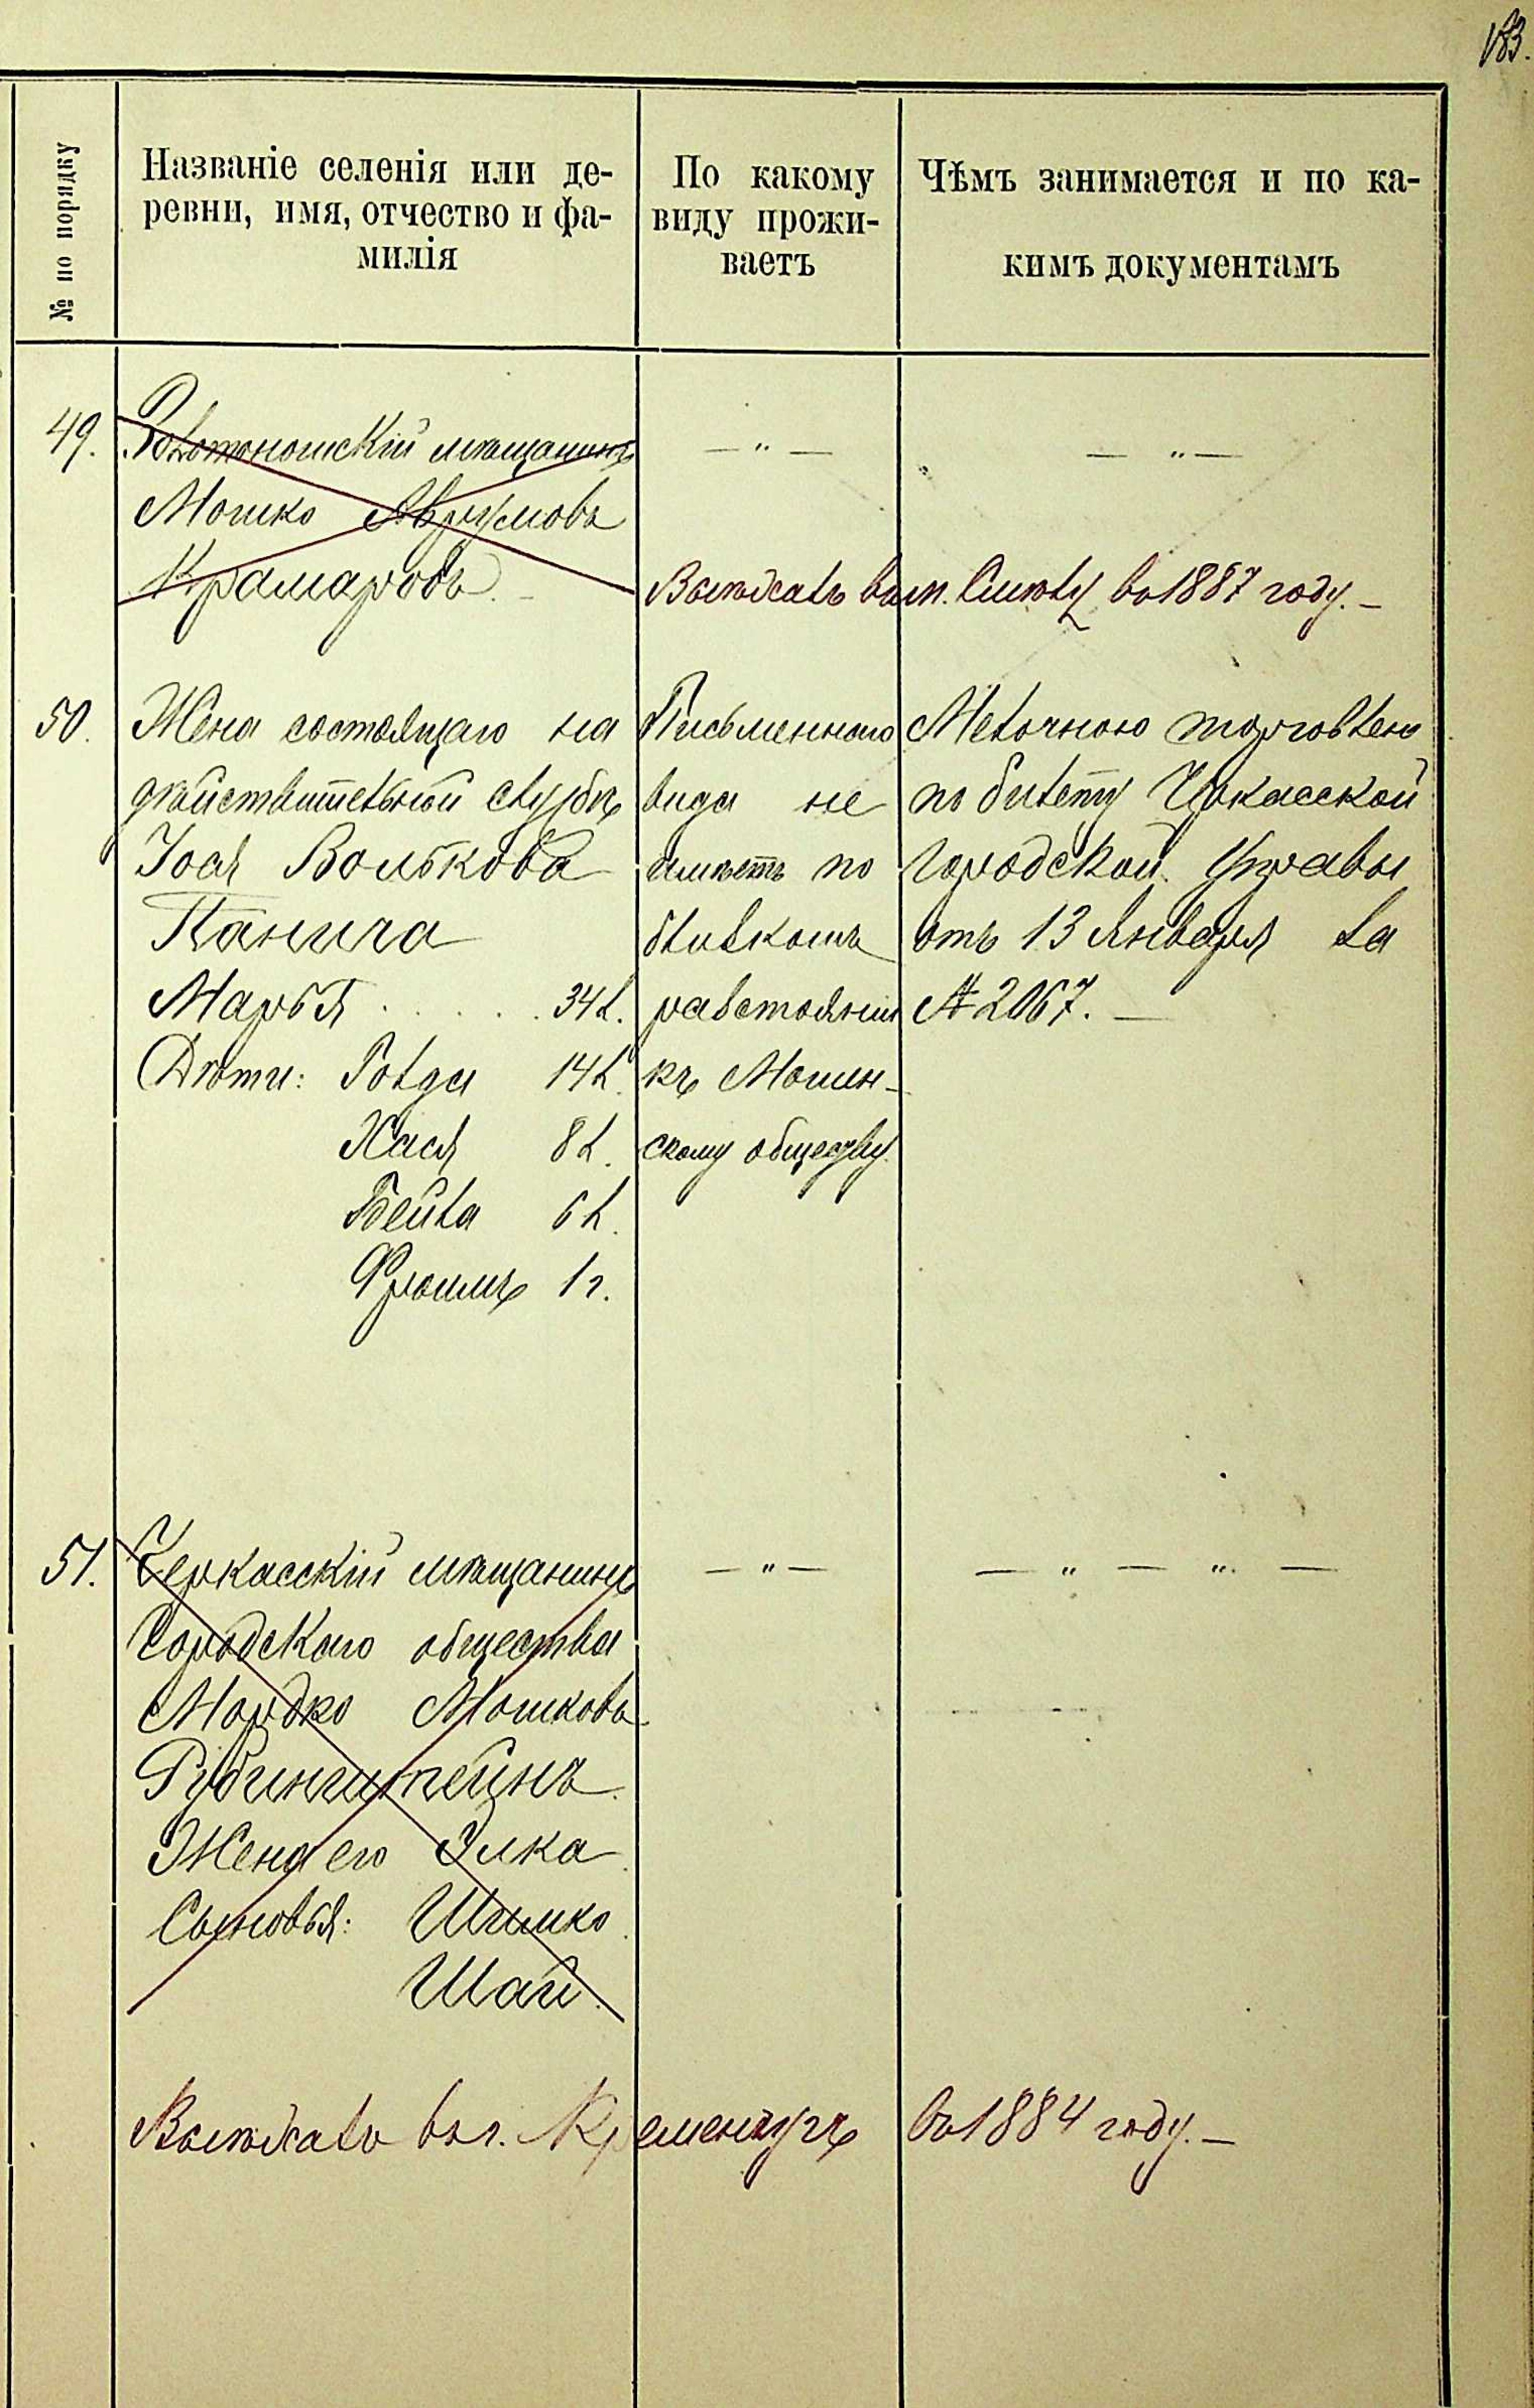 183.
№ по порядку
Названіе селенія или де-
ревни, имя, отчество и фа-
милія
По какому
виду прожи-
ваетъ
Чѣмъ занимается и по ка-
кимъ документамъ
49.
Золотоношскій мѣщанинъ
Мошко Аврумовъ
Крамаровъ. –
— " —
— " —
Выѣхалъ въ м. Смѣлу въ 1887 году. –
50.
Жена состоящаго на
дѣйствительной службѣ
Іося Волькова
Панича
Марья . . . . . 34 л.
Дѣти: Голда 14 л.
Хася 8 л.
Бейла 6 л.
Фроимъ 1 г.
Письменнаго
вида не
имѣетъ по
близкомъ
разстояніи
къ Мошен-
скому обществу.
Мелочною торговлею
по билету Черкасской
Городской Управы
отъ 13 Января за
№ 2067. —
51.
Черкасскій мѣщанинъ
Городскаго общества
Мордко Мошковъ
Рубинштейнъ.
Жена его Элка
Сыновья: Шимко
Шай.
— " —
— " — " —
Выѣхалъ въ г. Кременчугъ въ 1884 году. –